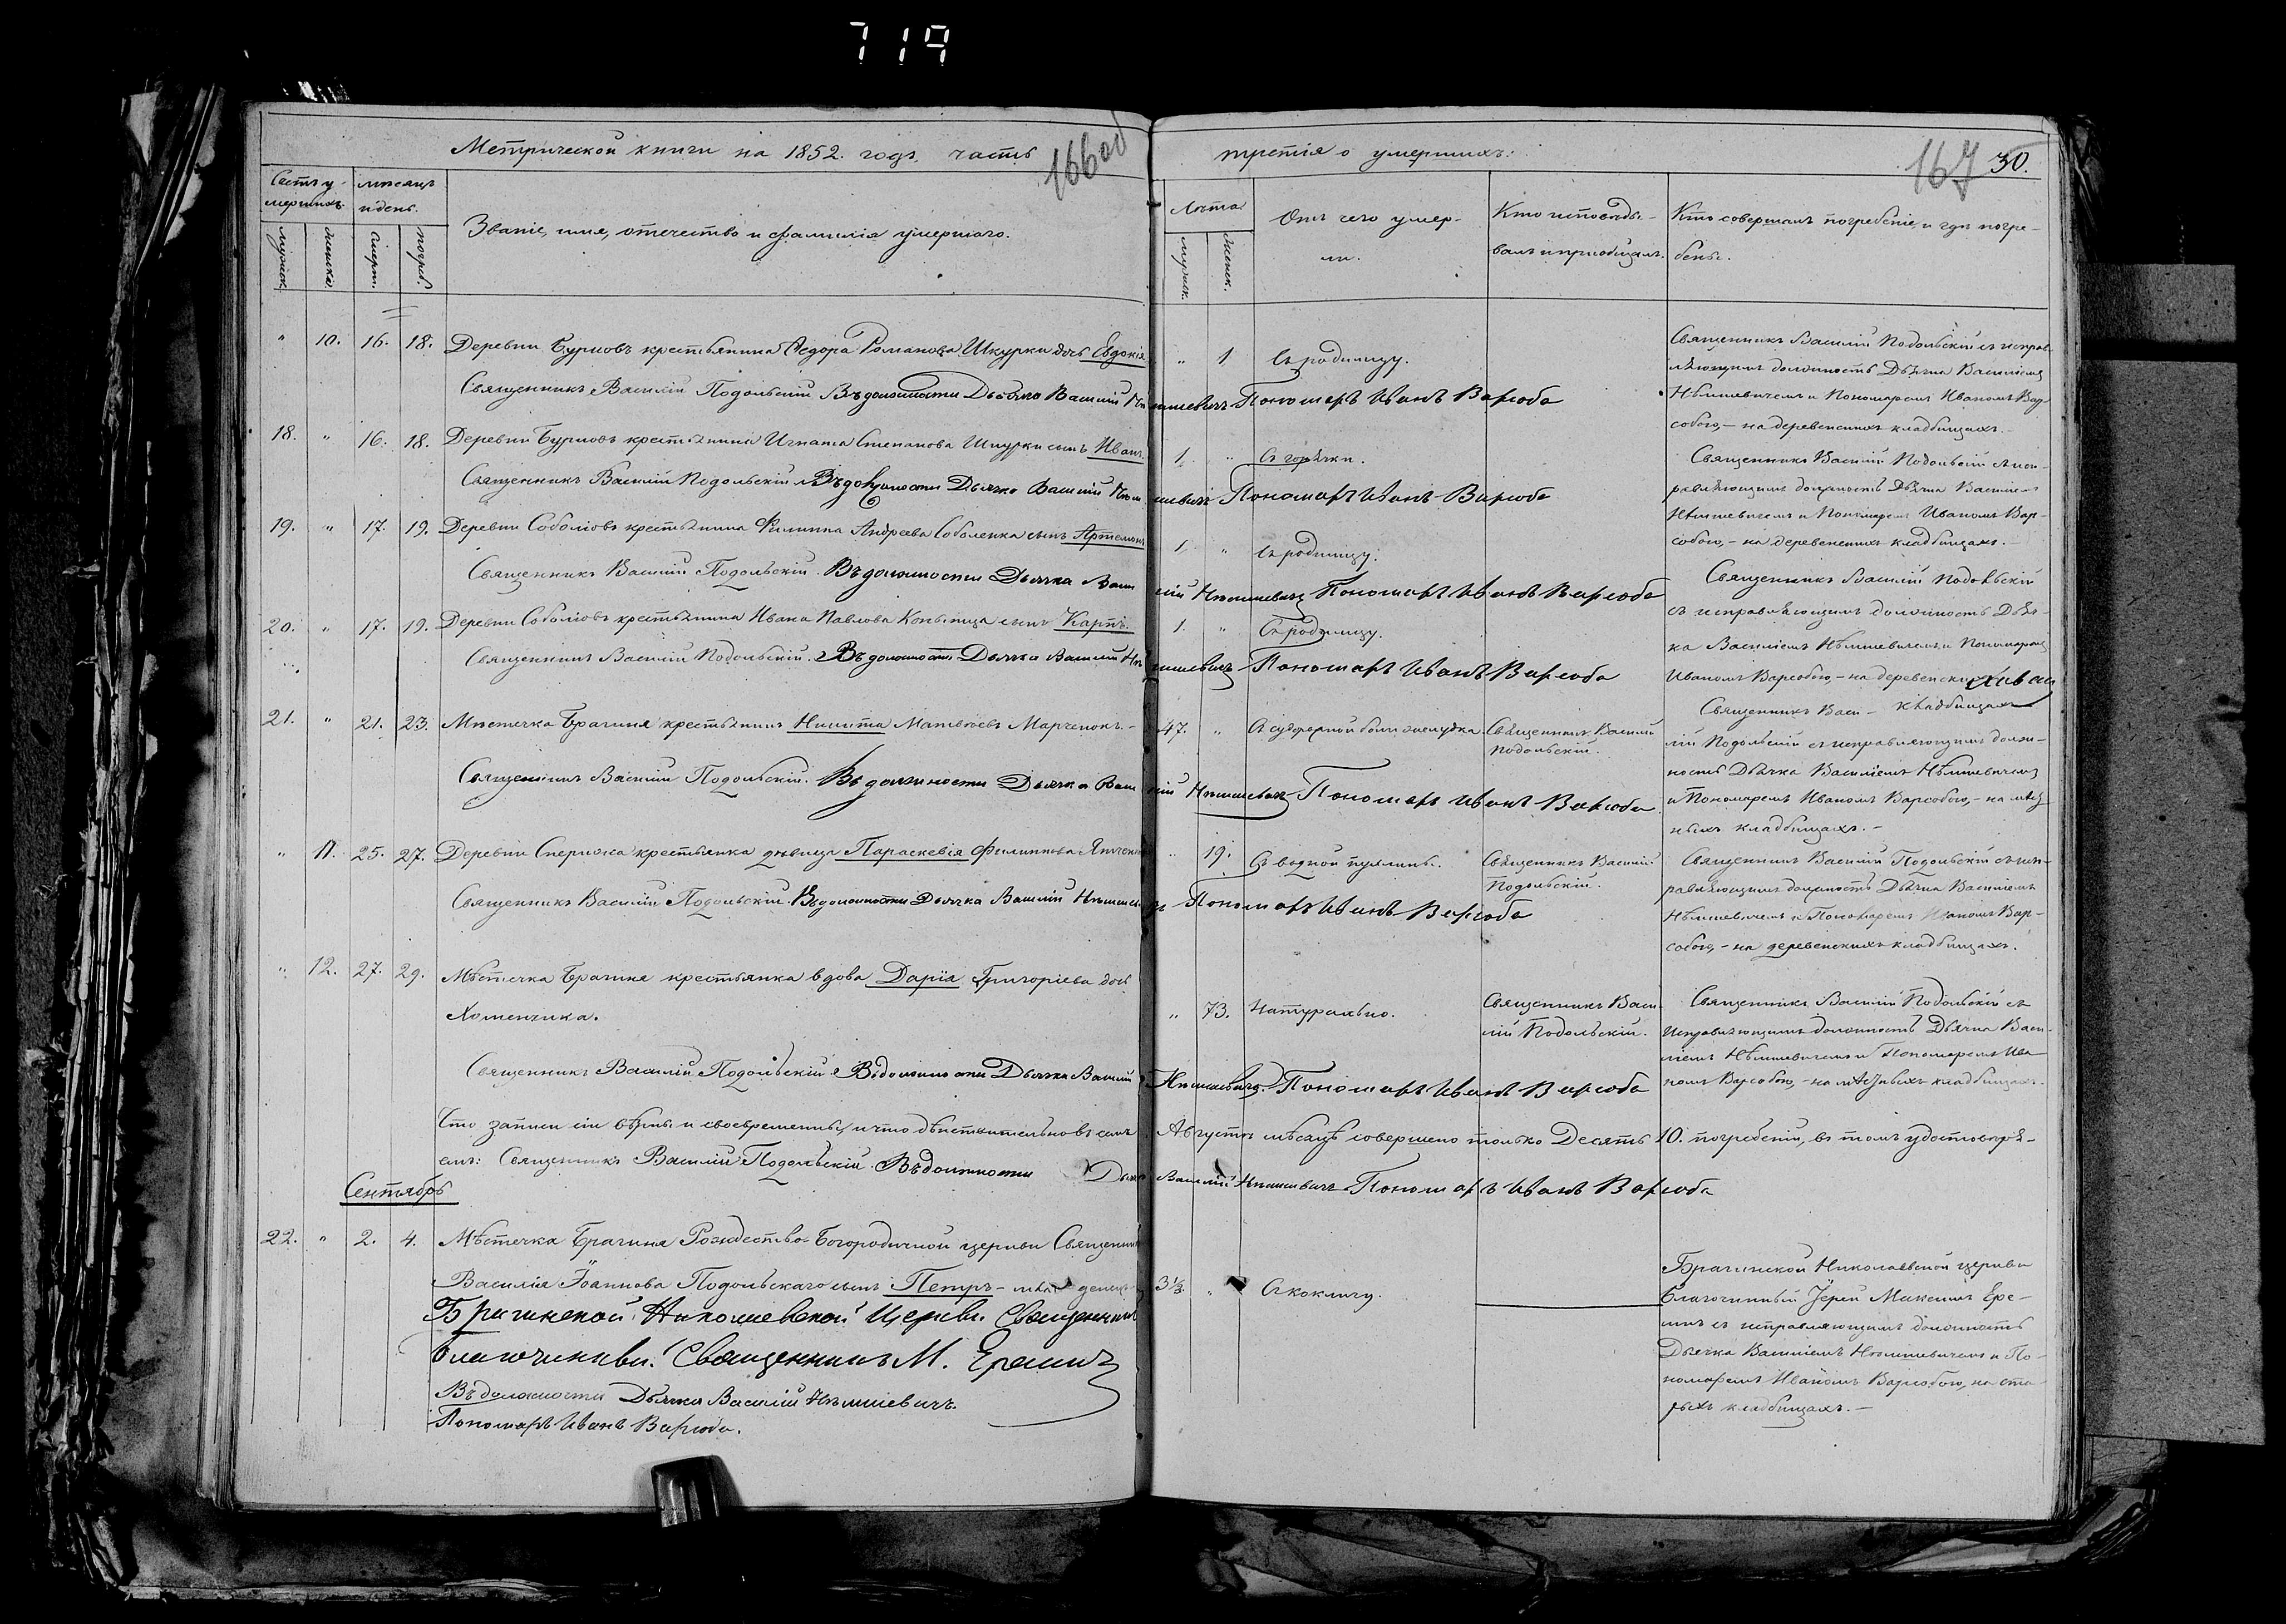 719
Метрической книги на 1852. годъ часть
166 об
третія о умершихъ:
167 30.
Счетъ умершихъ.
мѣсяцъ и день.
Званіе, имя, отечество и фамилія умершаго.
Лѣта
Отъ чего умерли.
Кто исповѣдывалъ и пріобщалъ.
Кто совершалъ погребеніе, и гдѣ погребены.
мужск.
женска.
смерт.
погреб.
мужск.
женск.
" 10. 16. 18. Деревни Бурковъ крестьянина Ѳедора Романова Шкурки дочь Евдокія
" 1 Съ родимцу.
Священникъ Василій Подольскій съ исправ-
ляющимъ должность Дьячка Василіемъ
Нѣмшевичемъ и Пономаремъ Иваномъ Вар-
собою, – на деревенскихъ кладбищахъ. –
Священникъ Василій Подольскій Въ должности Дьячка Василій Нѣмшевичъ Пономарь Иванъ Варсоба
18. " 16. 18. Деревни Бурковъ крестьянина Игната Степанова Шкурки сынъ Иванъ.
1. " Съ горячки.
Священникъ Василій Подольскій съ исп-
равляющимъ должность Дьячка Василіемъ
Нѣмшевичемъ и Пономаремъ Иваномъ Вар-
собою, – на деревенскихъ кладбищахъ. –
Священникъ Василій Подольскій Въ должности Дьячка Василій Нѣмшевичъ Пономарь Иванъ Варсоба
19. " 17. 19. Деревни Соболіовъ крестьянина Филиппа Андреева Соболенка сынъ Артемонъ
1. " Съ родимцу.
Священникъ Василій Подольскій
съ исправляющимъ должность Дьяч-
ка Василіемъ Нѣмшевичемъ и Пономаремъ
Иваномъ Варсобою, – на деревенскихъ
кладбищахъ
Священникъ Василій Подольскій. Въ должности Дьячка Василій Нѣмшевичъ Пономарь Иванъ Варсоба
20. " 17. 19. Деревни Соболіовъ крестьянина Ивана Павлова сынъ Карпъ.
1. " Съ родимцу.
Священникъ Василій Подольскій. Въ должности Дьячка Василій Нѣмшевичъ Пономарь Иванъ Варсоба
21. " 21. 23. Мѣстечка Брагиня крестьянинъ Никита Матвѣевъ Марченокъ. –
47. " Съ боли желудка. Священникъ Василій
Подольскій.
Священникъ Васи-
лій Подольскій съ исправляющимъ долж-
ность Дьячка Василіемъ Нѣмшевичемъ
и Пономаремъ Иваномъ Варсобою, – на
кладбищахъ. –
Священникъ Василій Подольскій. Въ должности Дьячка Василій Нѣмшевичъ Пономарь Иванъ Варсоба
" 11. 25. 27. Деревни Сперижа крестьянка дѣвица Параскевія Филиппова
" 19. Съ водной пухлины. Священникъ Василій
Подольскій.
Священникъ Василій Подольскій съ исп-
равляющимъ должность Дьячка Василіемъ
Нѣмшевичемъ и Пономаремъ Иваномъ Вар-
собою, – на деревенскихъ кладбищахъ.
Священникъ Василій Подольскій. Въ должности Дьячка Василій Нѣмшевичъ Пономарь Иванъ Варсоба
" 12. 27. 29. Мѣстечка Брагиня крестьянка вдова Дарія Григоріева дочь
Хоменчика.
" 73. Натурально. Священникъ Васи-
лій Подольскій.
Священникъ Василій Подольскій съ
исправляющимъ должность Дьячка Васи-
ліемъ Нѣмшевичемъ и Пономаремъ Ива-
номъ Варсобою, – на кладбищахъ.
Священникъ Василій Подольскій Въ должности Дьячка Василій Нѣмшевичъ. Пономарь Иванъ Варсоба
Что записи сіи вѣрны и своевременны, и что дѣйствительно въ семъ Августѣ мѣсяцѣ совершено только Десять 10. погребеній, въ томъ удостовѣря-
емъ: Священникъ Василій Подольскій. Въ должности Дьячка Василій Нѣмшевичъ Пономарь Иванъ Варсоба
Сентябрь
22. " 2. 4. Мѣстечка Брагиня Рождество-Богородичной церкви Священника
Василія Іоаннова Подольскаго сынъ Петръ – младенецъ
3½. " Съ коклюшу.
Брагинской Николаевской церкви
Благочинный Іерей Максимъ Ере-
мичъ съ исправляющимъ должность
Дьячка Василіемъ Нѣмшевичемъ и По-
номаремъ Иваномъ Варсобою, на ста-
рыхъ кладбищахъ. –
Брагинской Николаевской Церкви Священникъ
Благочинный Священникъ М. Еремичъ
Въ должности Дьячка Василій Нѣмшевичъ.
Пономарь Иванъ Варсоба.